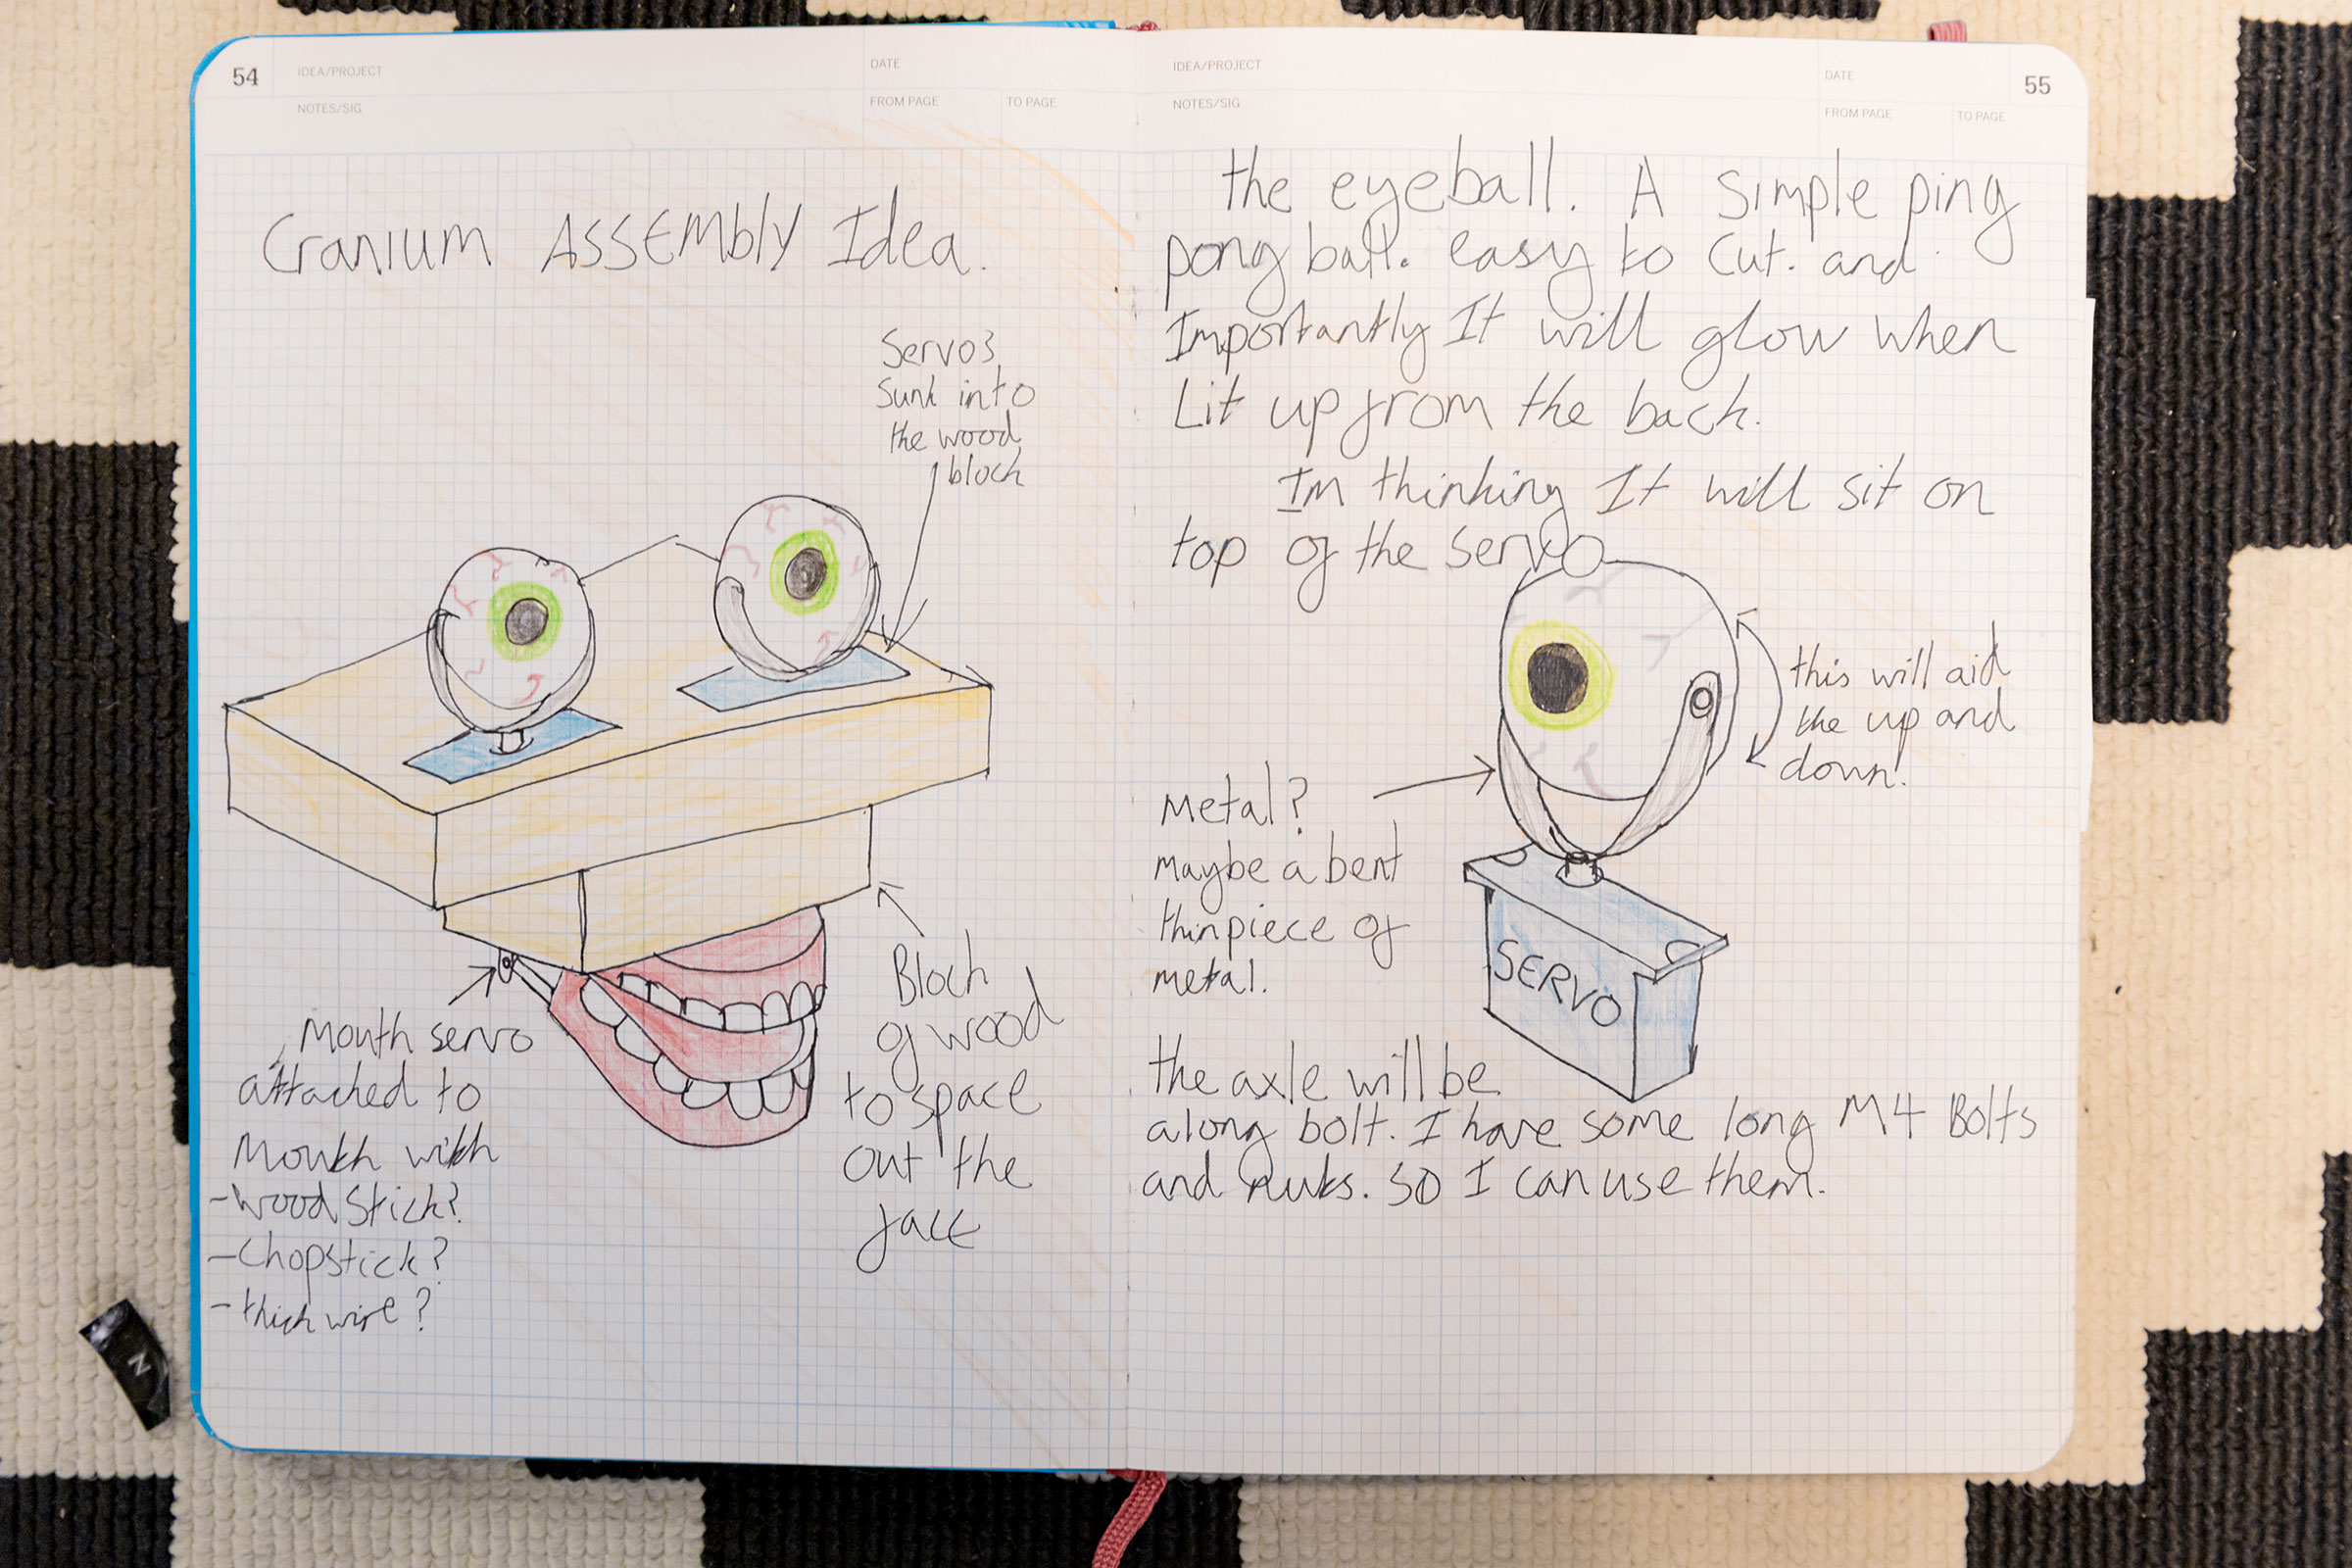 54
IDEA/PROJECT
DATE
NOTES/SIG
FROM PAGE
TO PAGE
Cranium ASSEMbly Idea.
Servos
Sunk into
the wood
block
Mouth servo
attached to
Mouth with
-Wood Stick?
-Chopstick?
-thick wire?
Block
of wood
to space
out the
face
IDEA/PROJECT
DATE
55
NOTES/SIG
FROM PAGE
TO PAGE
the eyeball. A Simple ping
pong ball. easy to Cut. and
Importantly It will glow when
Lit up from the back.
Im thinking It will sit on
top of the servo
this will aid
the up and
down!
Metal?
Maybe a bent
thin piece of
metal.
SERVO
the axle will be
a long bolt. I have some long M4 Bolts
and nuts. SO I can use them.
N